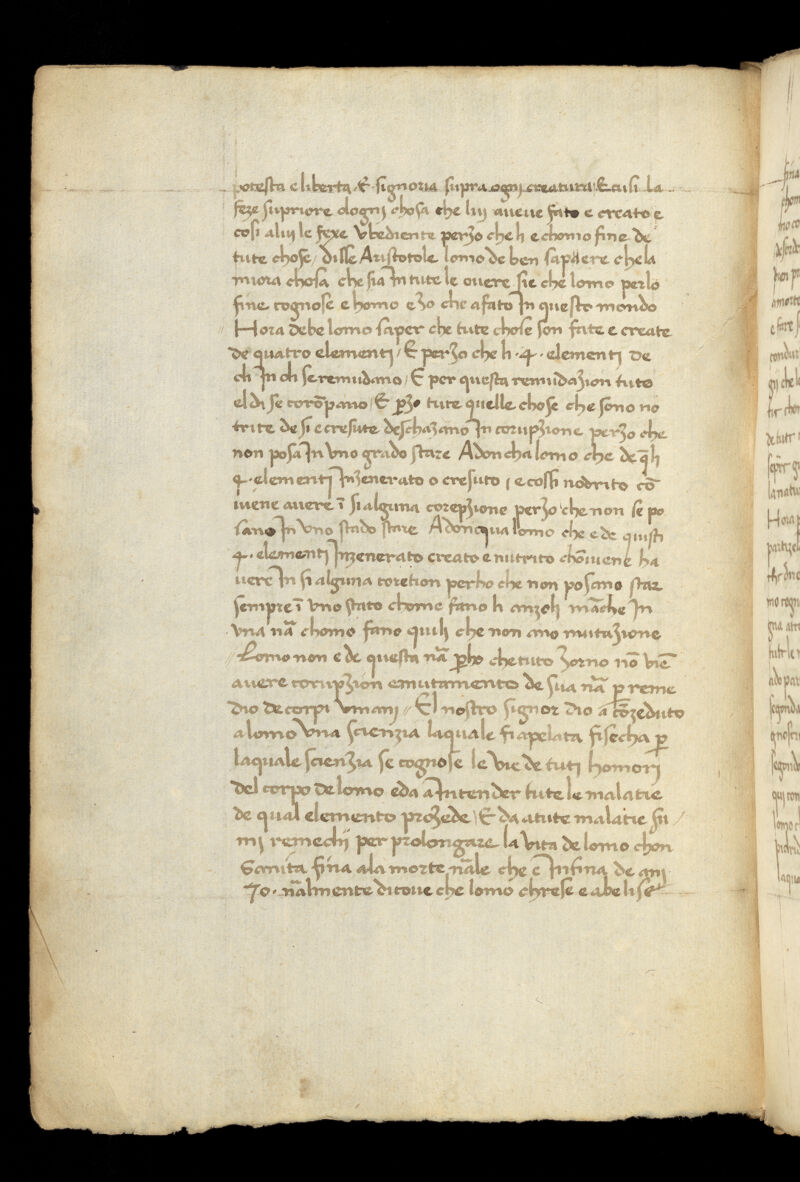 potesta e liberta / E signoria supra ogni creatura E cusi la
feze supriore dogni chosa che lui aueue fato e creato e
cosi a luj le fexe vbediente perzo che li e chomo fine de
tute chose / disse Aristotole lomo de ben sapaere che la
miora chosa che sia In tute le ouere sie che lomo per lo
fine cognose e homo ezo che a fato In questo mondo
Hora debe lomo saper che tute chose son fate e create
de quatro elementi / E perzo che li · 4 · elementi de
di In di se remudano / E per questa remudazion tuto
el di se corōpano / E ꝑzo tute quelle chose che sono no
trite de si e cresute deschazano In corupzione perzo che
non posa In vno grado stare Adoncha lomo che de q̄li
4 · elementi Inzenerato o cresuto / e cossi nodrito cō
iuene auere ī si alguna corepzione perzo che non se po
sano In vno stado stare Adoncqua lomo che e de quisti
4 · elementi Inzenerato creato e nutrito chōuene ha
uere In si alguna coretion perho che non posano star
sempre ī vno stato chome fano li anzoli māche In
vna nā chomo fano quili che non ano mutazione
// Lomo non e de questa nā ꝑho che tuto zorno nō viē
auere corupzion e mutamento de sua nā ꝑ reme
dio de corpi vmanj // El nostro signor dio a cōzeduto
a lomo vna scienzia la quale fi apelata fisecha ꝑ
la quale scienzia se cognose le vie de tuti homorj
del corpo de lomo e da a Intender tute le malatie
de qual elemento prozede / E da a tute malatie su /
mj remedij per prolongare la vita de lomo chon
Sanita fina a la morte nāle che e Infina de anj
70 · nālmente ditoue che lomo chrese e abelise